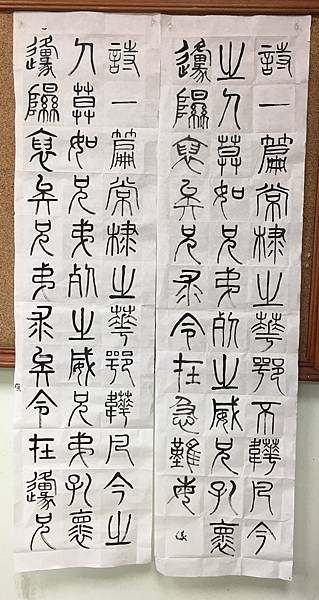 詩一篇常棣之華鄂不韡凡今
之人莫如兄弟死之威兄孔懷
邍隰裒矣兄求令在急難
詩一篇常棣之華鄂韡凡今之
人莫如兄弟死之威兄弟孔懷
邍隰裒矣兄弟求矣令在邍兄